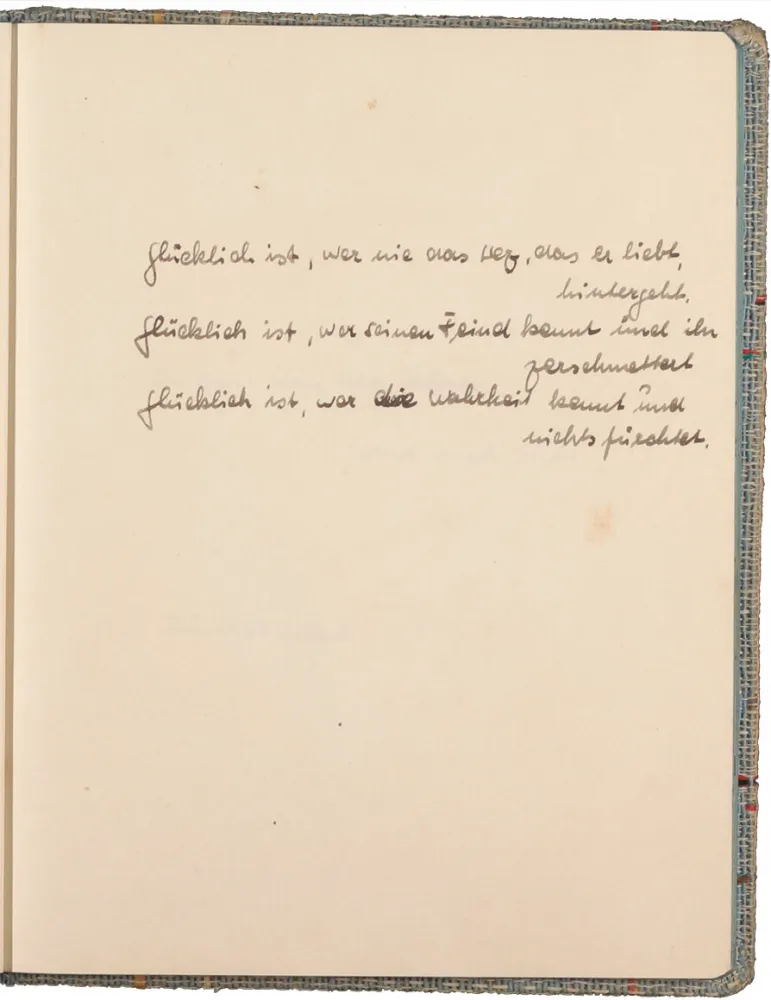 Glücklich ist, wer nie das Herz, das er liebt,
hintergeht.
Glücklich ist, wer seinen Feind kennt und ihn
zerschmettert
Glücklich ist, wer die Wahrheit kennt und
nichts fürchtet.